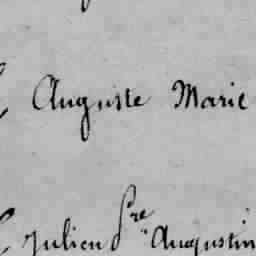 Auguste Marie
Julien Pre Augustin